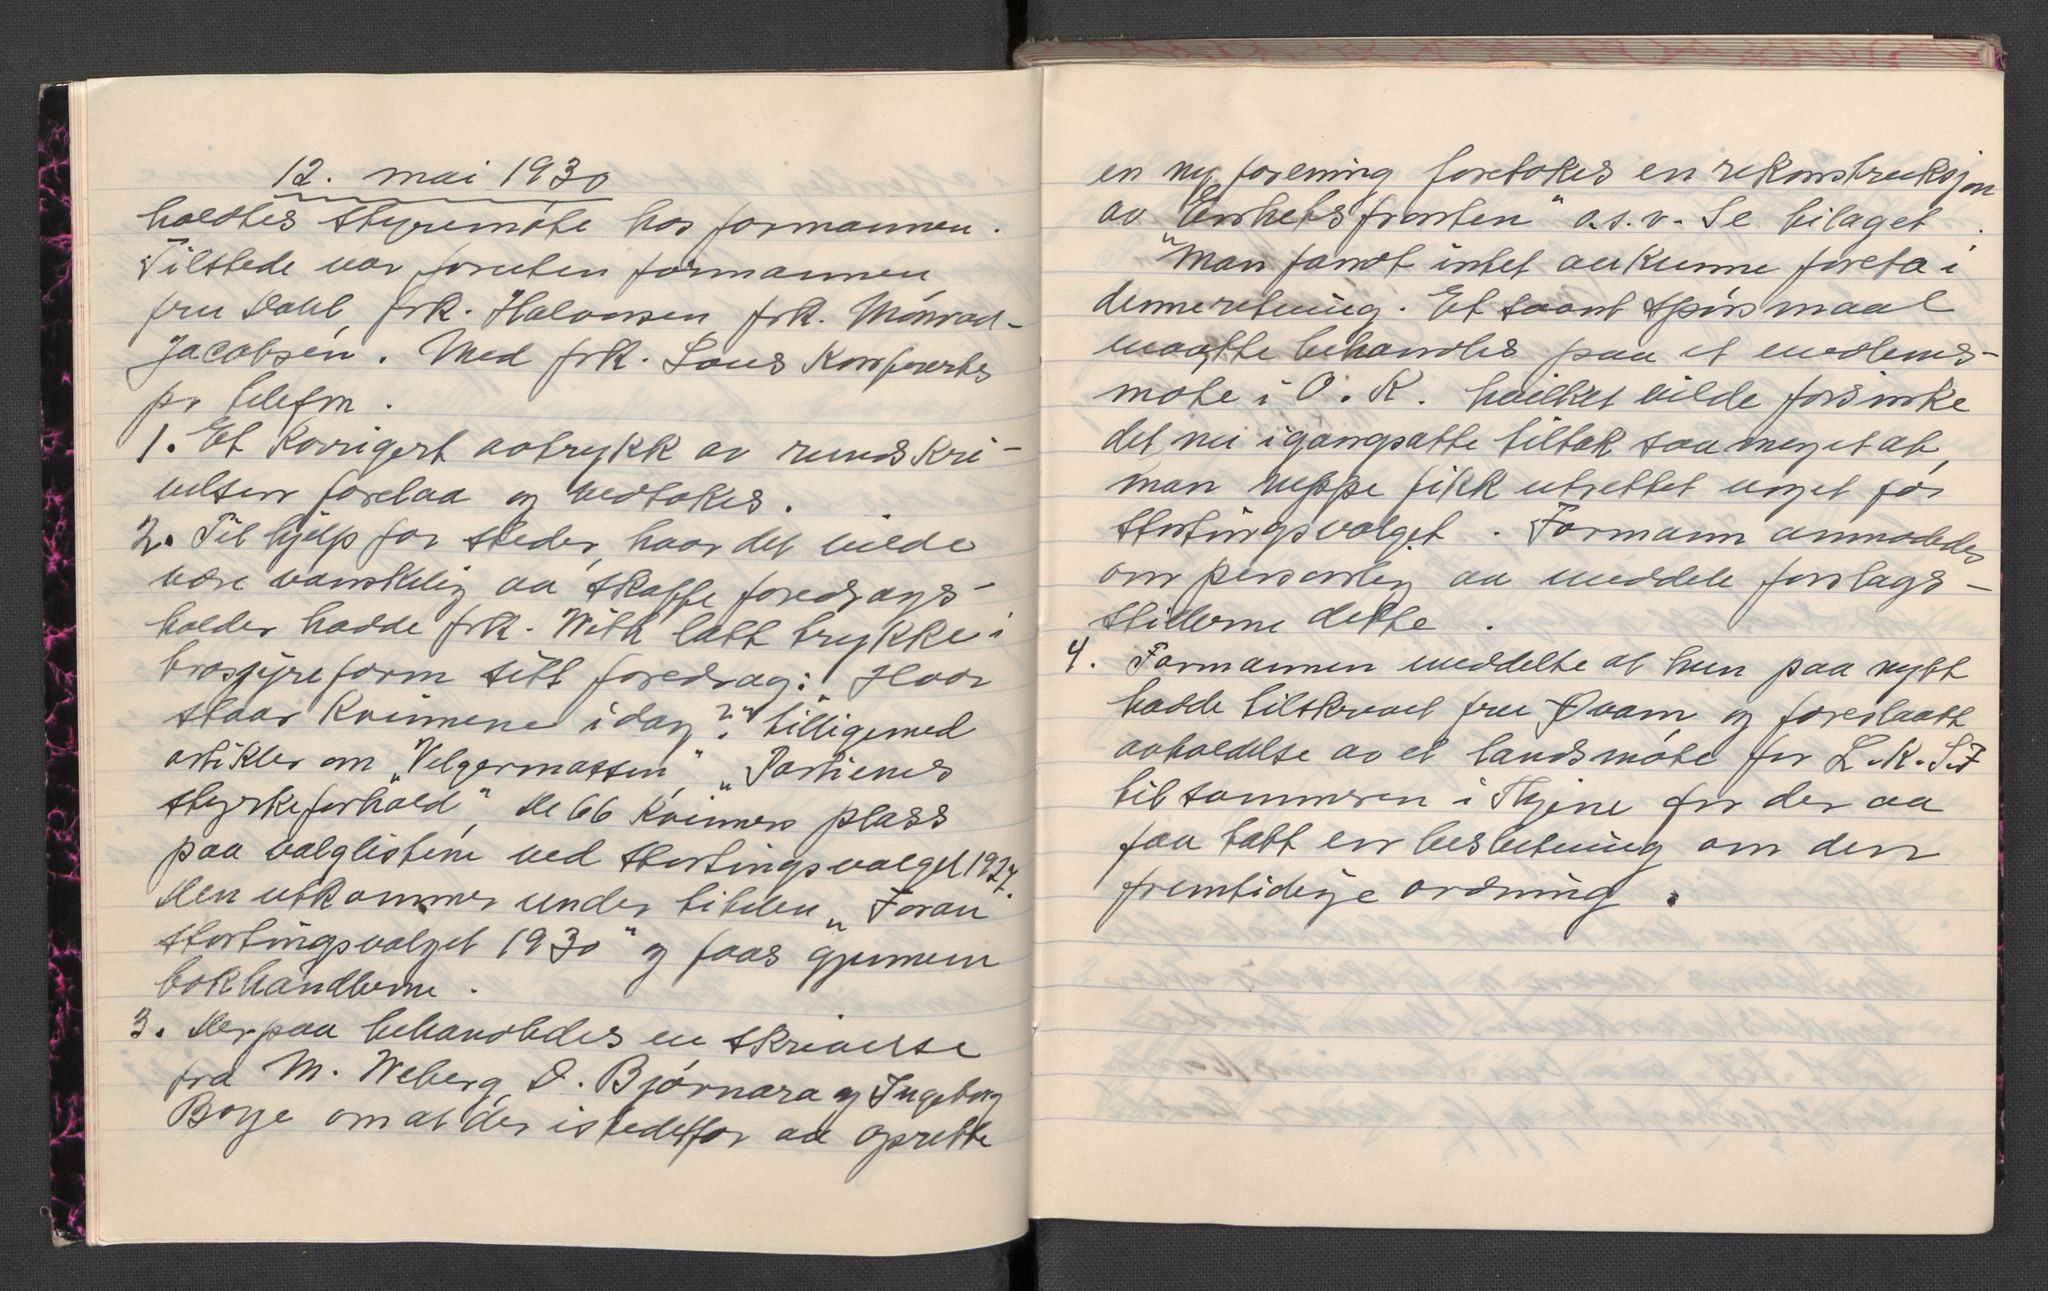 12. mai 1930
holdtes styremøte hos formannen.
Tilstede var foruten formannen
fru Dahl, frk. Halvorsen, frk. Monrad-
Jacobsen. Med frk. Lous konfertes
pr telefon.
1. Et korrigert avtrykk av rundskri-
velsen forelaa og vedtokes.
2. Til hjelp for steder, hvor det vilde
være vanskelig aa skaffe foredrags-
holder hadde frk. With latt trykke i
brosjyreform sitt foredrag: "Hvor
staar kvinnene idag?" tilligemed
artikler om "Velgermassen", "Partienes
styrkeforhold", De 66 kvinners plass
paa valglistene ved stortingsvalget 1927.
Den utkommer under titelen "Foran
stortingsvalget 1930" og faas gjennem
bokhandlerne.
3. Derpaa behandledes en skrivelse
fra M. Weberg, O. Bjørnara og Ingeborg
Boye om at der istedetfor aa oprette
en ny forening foretokes en rekonstruksjon
av "Enhetsfronten" o.s.v. Se bilaget.
Man fandt intet aa kunne foreta i
denne retning. Et saant spørsmaal
maatte behandles paa et medlems-
møte i O. K. hvilket vilde forsinke
det nu igangsatte tiltak saa meget at,
man neppe fikk utrettet noget før
stortingsvalget. Formann anmodedes
om personlig aa meddele forslags-
stillerne dette.
4. Formannen meddelte at hun paa nytt
hadde tilskrevet fru Qvam og foreslaatt
avholdelse av et landsmøte for L.K.S.F
til sommeren i Thjeme for der aa
faa tatt en beslutning om den
fremtidige ordning.